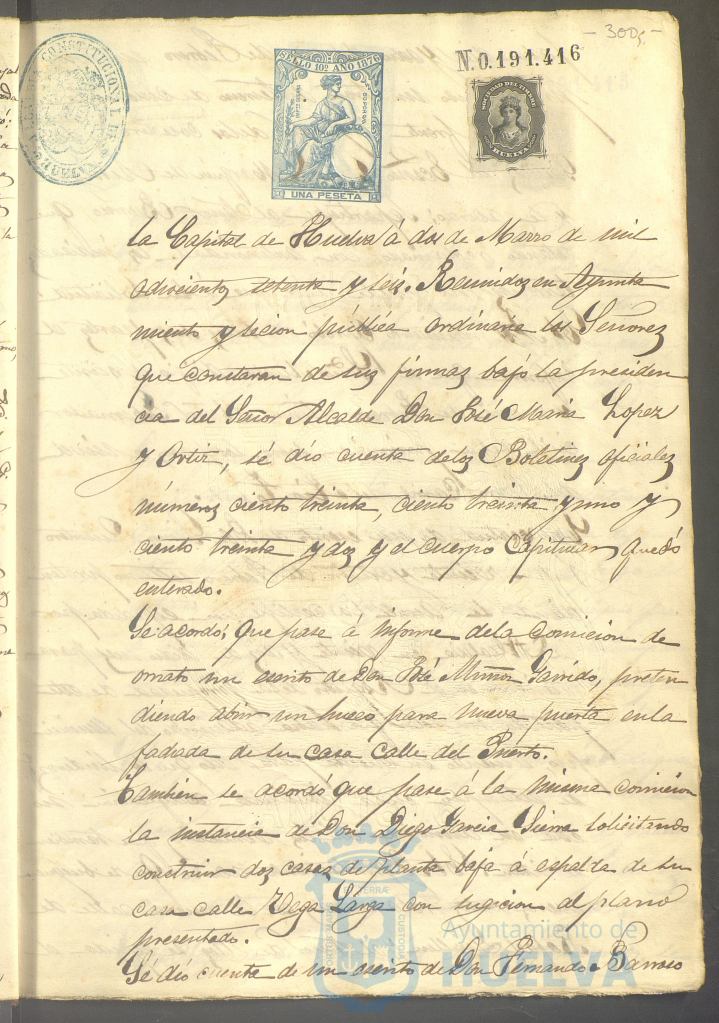 - 300,-
CONSTITUCIONAL
HUELVA
SELLO 10º AÑO 1876
UNA PESETA
N.0.191.416
SOCIEDAD DEL TIMBRE
HUELVA
la Capital de Huelva á dos de Marzo de mil
ochocientos setenta y seis. Reunidos en Ayunta
miento y secion pública ordinaria los Señores
que constaran de sus firmas bajo la presiden
cia del Señor Alcalde Don José Maria Lopez
y Ortiz, sé dio cuenta delos Boletines oficiales
números ciento treinta, ciento treinta y uno y
ciento treinta y dos y el cuerpo Capitular quedó
enterado.
Se acordó; que pase á informe dela comicion de
ornato un escrito de Don José Muñoz Garrido, preten
diendo abrir un hueco para nueva puerta en la
fachada de su casa calle del Puerto.
Tambien se acordó que pase á la misma comicion
la instancia de Don Diego Garcia Sierra solicitando
construir dos casas de planta baja á espalda de su
casa calle Vega Larga con sugicion al plano
presentado.
Sé dió cuenta de un escrito de Don Fernando Barroso
Ayuntamiento de
HUELVA